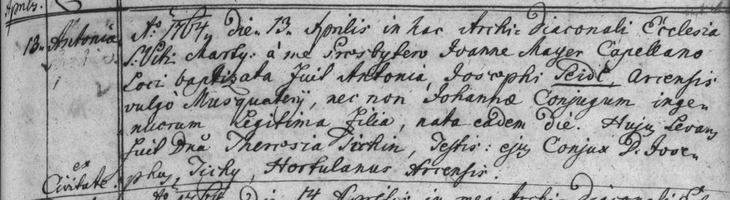 Aprilis
13. Antonia
Aõ 1764, die 13. Aprilis in hac Archi-Diaconali Ecclesia
S. Viti Marty: á me Presbytero Joanne Mayer Capellano
Loci baptizata fuit Antonia, Josephi Arcensis
vulgò Musquaterÿ, nec non Johannæ Conjugum inge-
nuorum legitima Filia, nata eadem die. Hujus Levans
fuit Dña Theresia Tichin, Testis: ejus Conjux D. Jose-
phus Tichy, Hortulanus Arcensis.
ex
Civitate.
14 Aprilis in Archi-Diaconali